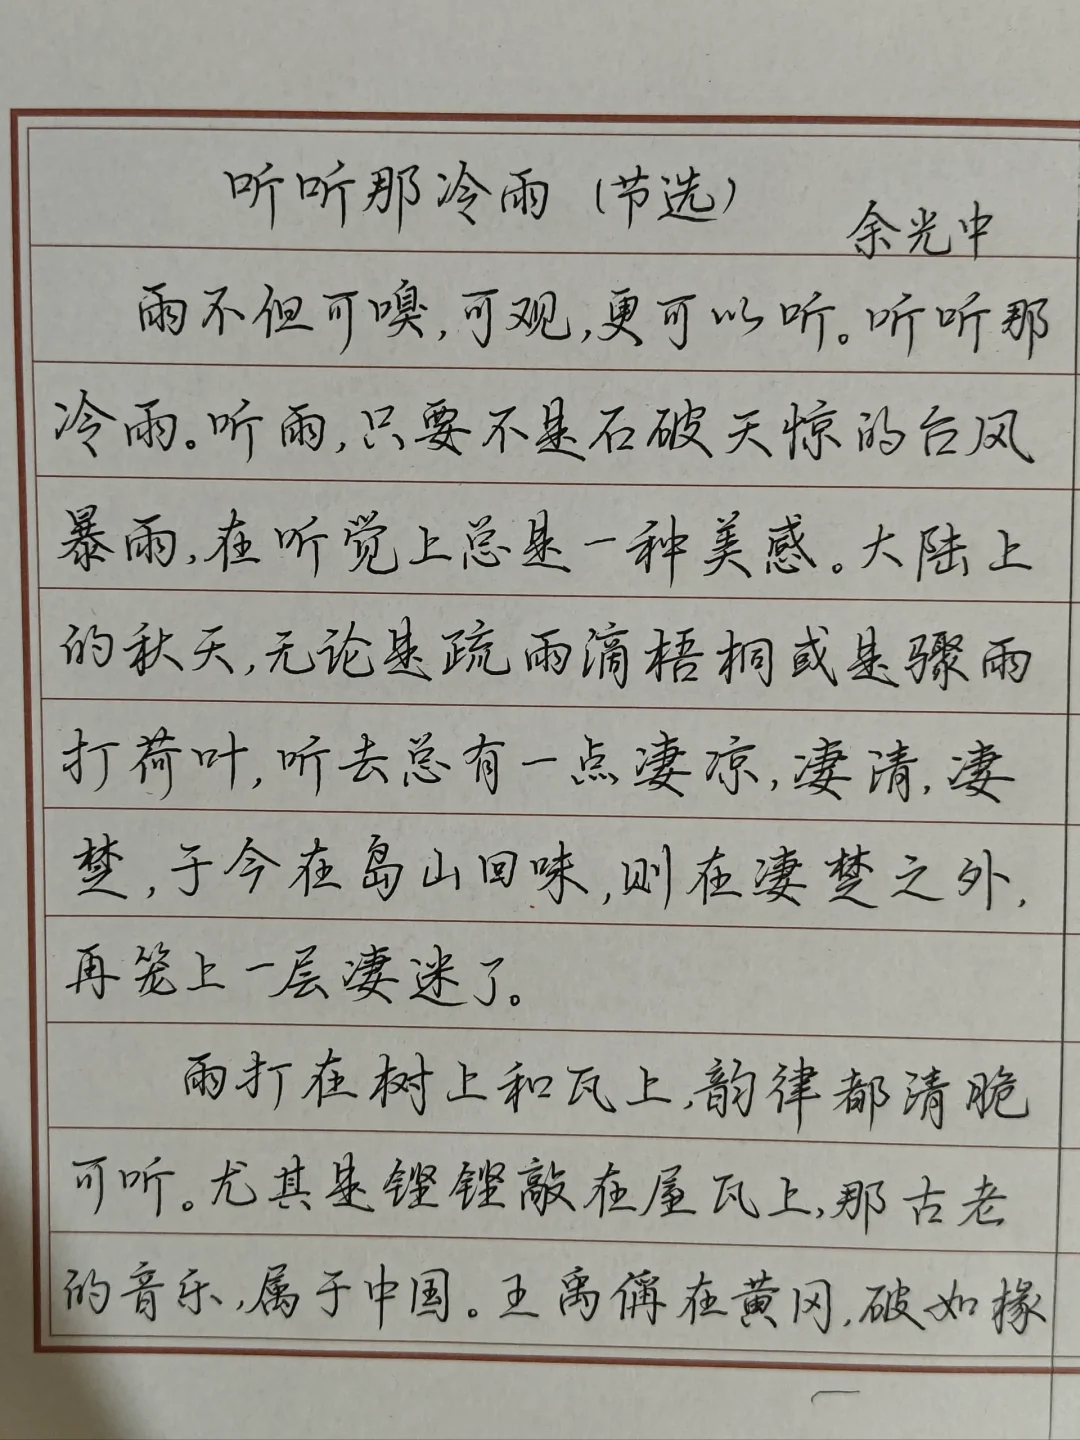 听听那冷雨（节选）
余光中
雨不但可嗅,可观,更可以听。听听那
冷雨。听雨,只要不是石破天惊的台风
暴雨,在听觉上总是一种美感。大陆上
的秋天,无论是疏雨滴梧桐或是骤雨
打荷叶,听去总有一点凄凉,凄清,凄
楚,于今在岛山回味,则在凄楚之外,
再笼上一层凄迷了。
雨打在树上和瓦上,韵律都清脆
可听。尤其是铿铿敲在屋瓦上,那古老
的音乐,属于中国。王禹偁在黄冈,破如椽